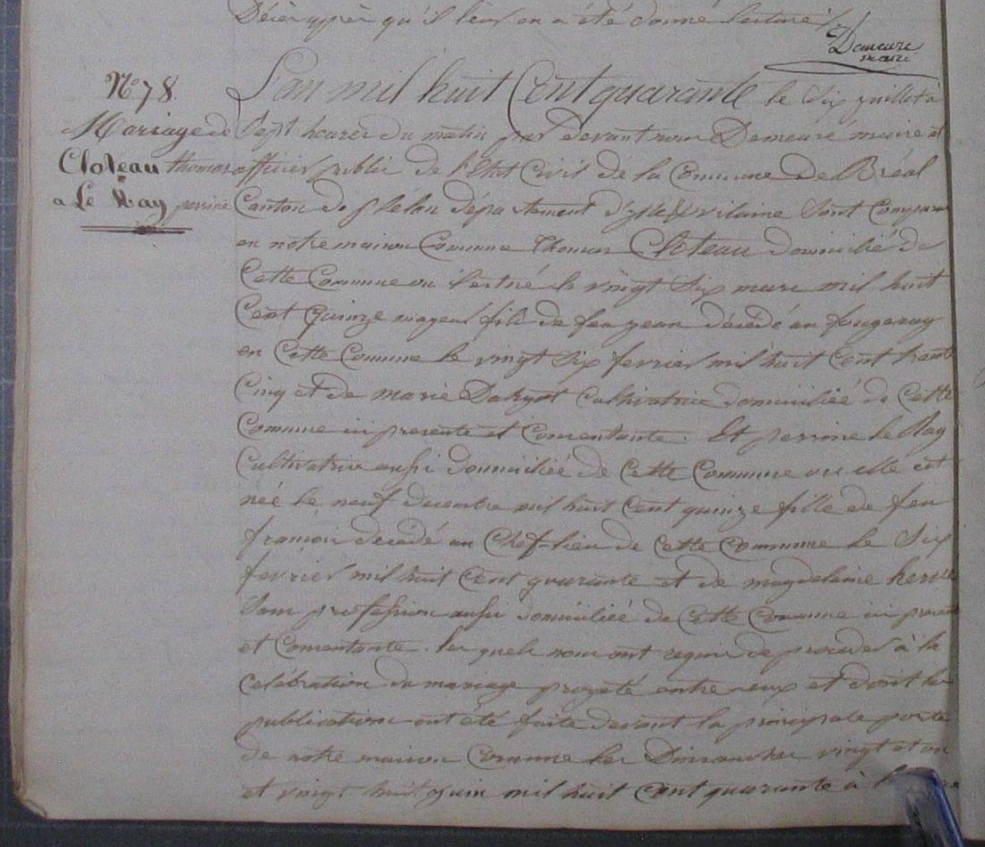 Décès après qu'il leur en a été donné lecture
Demeure
maire
N° 78.
Mariage de
Cloteau thomas
a Le Ray perrine
L'an mil huit Cent quarante le Six juillet à
Sept heures du matin par devant nous Demeuré maire et
officier public de l'Etat Civil de la Commune de Bréal
Canton de plélan département d'ylle & vilaine Sont Comparus
en notre maison Commune Thomas Cloteau domicilié de
Cette Commune ou il est né le vingt Six mars mil huit
Cent Quinze majeur fils de feu jean décédé au fougeray
en Cette Commune le vingt Six fevrier mil huit Cent trente
Cinq et de marie Cultivatrice domiciliée de Cette
Commune ici presente et Consentante. Et perrine le Ray
Cultivatrice aussi domiciliée de Cette Commune ou elle est
née le neuf decembre mil huit Cent quinze fille de feu
francois decedé au Chef-lieu de Cette Commune le Six
fevrier mil huit Cent quarante et de magdelaine hervé
Sans profession aussi domiciliée de Cette Commune ici presente
et Consentante. les quels nous ont requis de proceder à la
Celebration du mariage projeté entre eux et dont les
publications ont été faite devant la principale porte
de notre maison Commune les Dimanches vingt et un
et vingt huit juin mil huit Cent quarante à